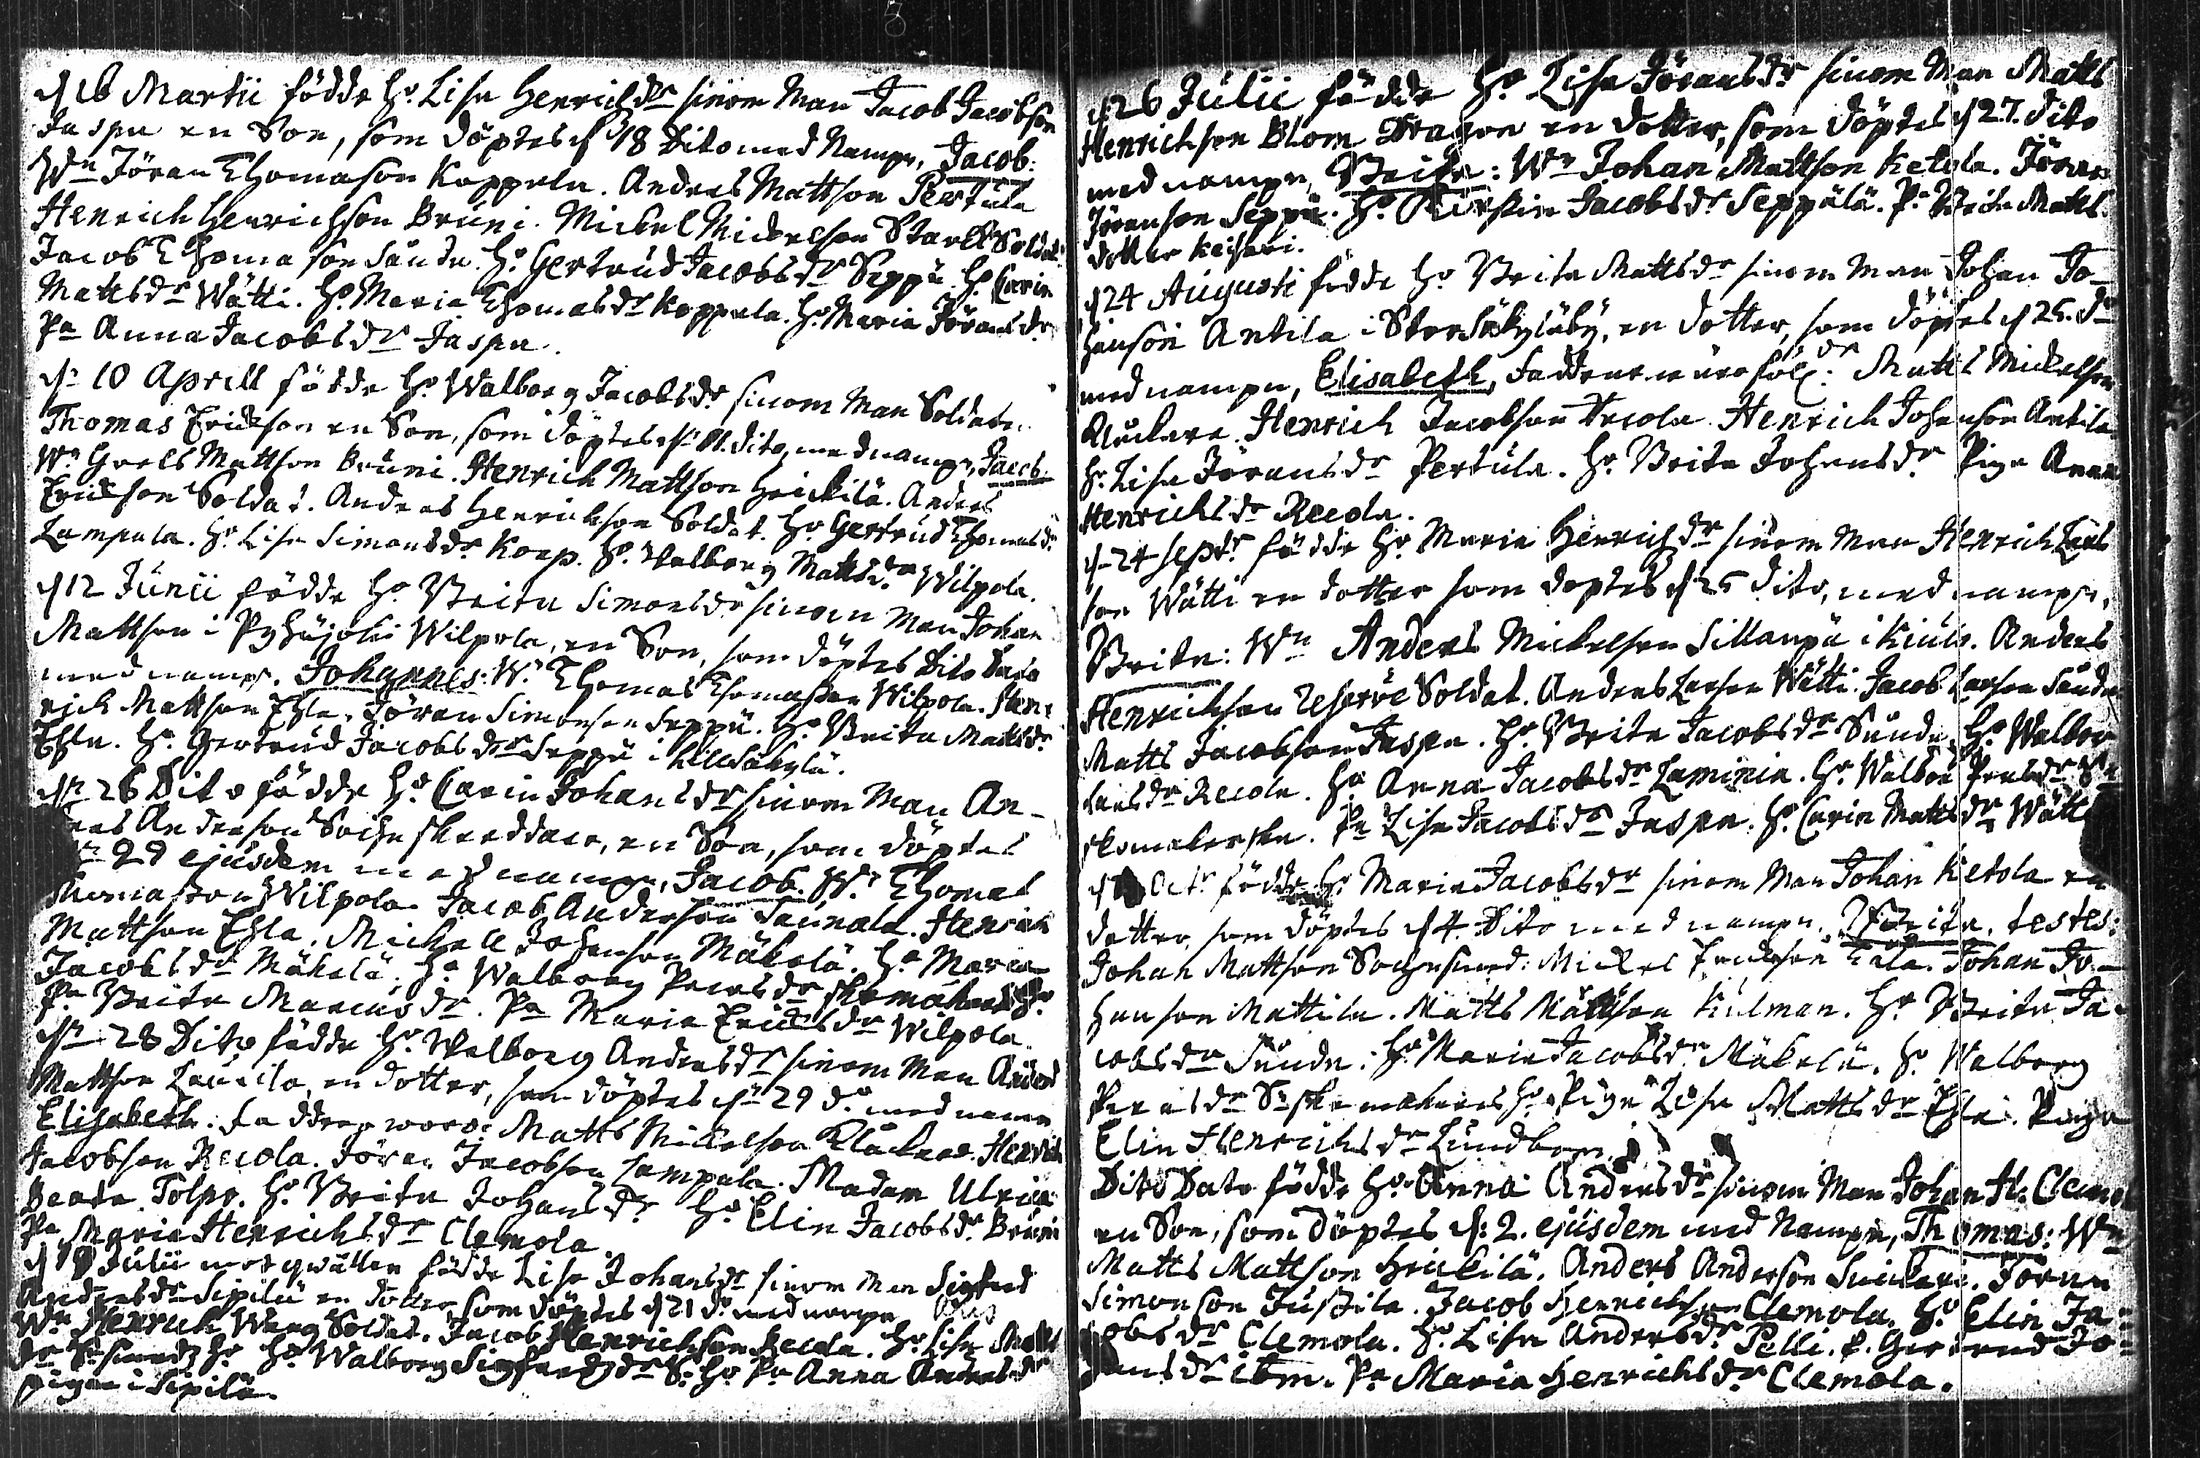 d 16 Martii födde H:o Lisa Henrichsdr sinom Man Jacob Jacobson
Jaspa en Son, som döptes d 18 Dito med Nampn, Jacob:
Wn Jöran Thomason Koppala. Anders Mattson Pertula
Henrich Henrichson Bruni. Mickel Mickelson Starck Soldat
Jacob Thomason Sandu. Ho Gertrud Jacobsdr Seppä. Ho Carin
Mattsdr Wätti. Ho Maria Thomasdr Koppala. Ho Maria Jöransdr
Pa Anna Jacobsdr Jaspa.
dn 10 Aprill födde Ho Walborg Jacobsdr sinom Man Soldaten
Thomas Erickson en Son, som döptes dn 11. dito, med nampn, Jacob.
Wn Greels Mattson Bruni. Henrich Mattson Heickilä. Anders
Erickson Soldat. Anders Henrickson Soldat. Ho Gertrud Thomasdr
Lampala. Ho Lisa Simonsdr Korp. Ho Walborg Mattsdr Wilpola.
d 12 Junii födde Ho Brita Simonsdr sinom Man Johan
Mattson i Pyhäjoki Wilpola, en Son, som döptes Dito Dato
med nampn. Johannes: Wn Thomas Thomasson Wilpola. Hen-
rich Mattson Ehla. Jöran Simonson Seppä. Ho Brita Mattsdr
Ehla. Ho Gertrud Jacobsdr Seppä i Lillsäkylä.
dn 26 Dito födde Ho Carin Johansdr sinom Man An-
ders Anderson Sochnskreddare, en Son, som döptes
dn 29 ejusdem med nampn, Jacob. Wn Thomas
Thomason Wilpola. Jacob Anderson Saunala. Henrich
Mattson Ehla. Michell Johanson Mäkelä. Ho Maria
Jacobsdr Mäkelä. Ho Walborg Persdr skomakars Ho.
Pa Brita Marcusdr. Pa Maria Ericksdr Wilpola.
dn 28 Dito födde Ho Walborg Andersdr sinom Man Anders
Mattson Laurila, en dotter, som döptes dn 29 do med namn
Elisabeth. Faddrar woro: Matts Mickelson Klåckare. Henrich
Jacobson Recola. Jöran Jacobson Lampala. Madam Ulrica
Beata Tolpo. Ho Brita Johansdr Ho Elin Jacobsdr Bruni
Pa Maria Henrichsdr Clemola.
d 19 Julii mot qwällen födde Lisa Johansdr sinom Man Sigfred
Andersdr Sipilä en dotter som döptes d 21 do med nampn
Wn Henrich Wang Soldat. Jacob Henrichson Recola. Ho Lisa Matts
dr Ho Ho Walborg Sigfredsdr S. Ho Pa Anna Andersdr
pigan i Sipilä.
d 26 Julii födde Ho Lisa Jöransdr sinom Man Matts
Henrichson Blom Dragon en dotter, som döptes d 27. dito
med nampn, Brita: Wn Johan Mattson Ketola. Jöran
Jöranson Seppä. Ho Kirstin Jacobsdr Seppälä. Pa Brita Matts
dotter Keisari.
d 24 Augusti födde Ho Brita Mattsdr sinom Man Johan Jo-
hanson Antila i Storsäkyläby, en dotter, som döptes d 25. do
med nampn, Elisabeth, Faddrarne äro följ: Matts Mickelson
Kluckare. Henrich Jacobson Recola. Henrich Johanson Antila
Ho Lisa Jöransdr Pertula. Ho Brita Johansdr Pigan Anna
Henrichsdr Recola.
d 24 Septr födde Ho Maria Henrichsdr sinom Man Henrich Lars
son Wätti en dotter som döptes d 25 dito, med nampn,
Brita: Wn Anders Mickelson Sillanpä i Kiulo. Anders
Henrichson Reserve Soldat. Anders Larson Wätti. Jacob Larson Sandu
Matts Jacobson Jaspa. Ho Brita Jacobsdr Sandu. Ho Walbor
Larsdr Recola. Ho Anna Jacobsdr Laminia. Ho Walbor Persdr Sn
skomakerska. Pa Lisa Jacobsdr Jaspa. Ho Carin Mattsdr Wätti
d Octr födde Ho Maria Jacobsdr sinom Man Johan Ketola en
dotter som döptes d 4. Dito med nampn, Brita, testes:
Johan Mattson Sochnsmed: Mickel Erickson Eala. Johan Jo-
hanson Mattila. Matts Mattson Kulman. Ho Brita Ja-
cobsdr Sandu. Ho Maria Jacobsdr Mäkelä. Ho Walborg
Persdr Sn skomakares Ho. Pigan Lisa Mattsdr Ehla. Pigan
Elin Henrichsdr Lundberg.
Dito Dato födde Ho Anna Andersdr sinom Man Johan H. Clemola
en Son, som döptes d: 2. ejusdem med Nampn, Thomas: Wn
Matts Mattson Heickilä. Anders Anderson Suickari. Jöran
Simonson Jussila. Jacob Henrichson Clemola. Ho Elin Ja-
cobsdr Clemola. Ho Lisa Andersdr Pelli. P. Gertrud Jo-
hansdr item. Pa Maria Henrichsdr Clemola.